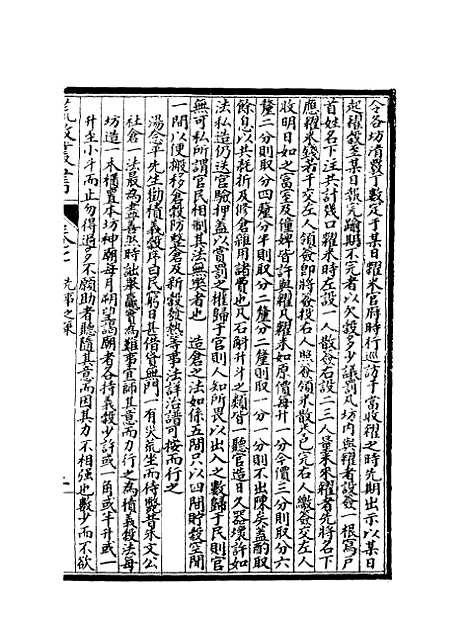 令各坊清覈丁數定于某日糶米官府時行巡訪于當收糶之時先期出示以某日
起糶穀至某日報完踰期不完者以欠穀多少議罰凡坊内與糶者設簽一根寫戶
首姓名下注共計幾口糶米時左設一人散簽右設二三人量米來糶者先將名下
應糶米錢若干交左人領簽即將簽投右人照簽領米散米已完右人繳簽交左人
收明日如之富室及僮婢皆許與糶凡糶米如原價每升一分令價三分則取分六
釐二分則取分四釐分半則取分二釐分二釐則取一分一分則不出陳矣蓋酌取
餘息以共耗折及修倉雜用諸費也凡石斛升斗之類皆聽官造日久器壞許如
法私造仍送官驗押蓋以賞罰之權歸于官則人知所畏以出入之數歸于民則官
無可私所謂官民相制其法無獘者也 造倉之法如係五間只以四間貯穀空閒
一間以便搬移倉穀防整倉及新穀發熱等事法詳治譜可按而行之
湯念平先生勸積義穀序曰民窮日甚借貸無門一有災荒坐而待斃昔朱文公
社倉一法最為盡善然時詘舉贏實為難事宜師其意而力行之為積義穀法每
坊造一木櫃置本坊神廟每月朔望謁廟者各持義穀少許或一角或半升或一
升至小斗而止勿得過多不願助者聽隨其意而因其力不相强也數少而不欲
荒政叢書
卷七
先事之策